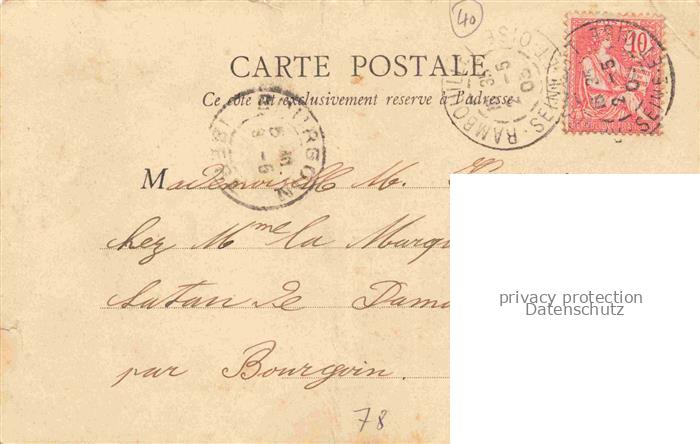 40
CARTE POSTALE
Ce côté est exclusivement réservé à l'adresse
RAMBOUILLET
SEINE-ET-OISE
10
BOURGOIN
Mademoiselle M.
chez Mme la Marqu
de Dama
par Bourgoin.
78
privacy protection
Datenschutz